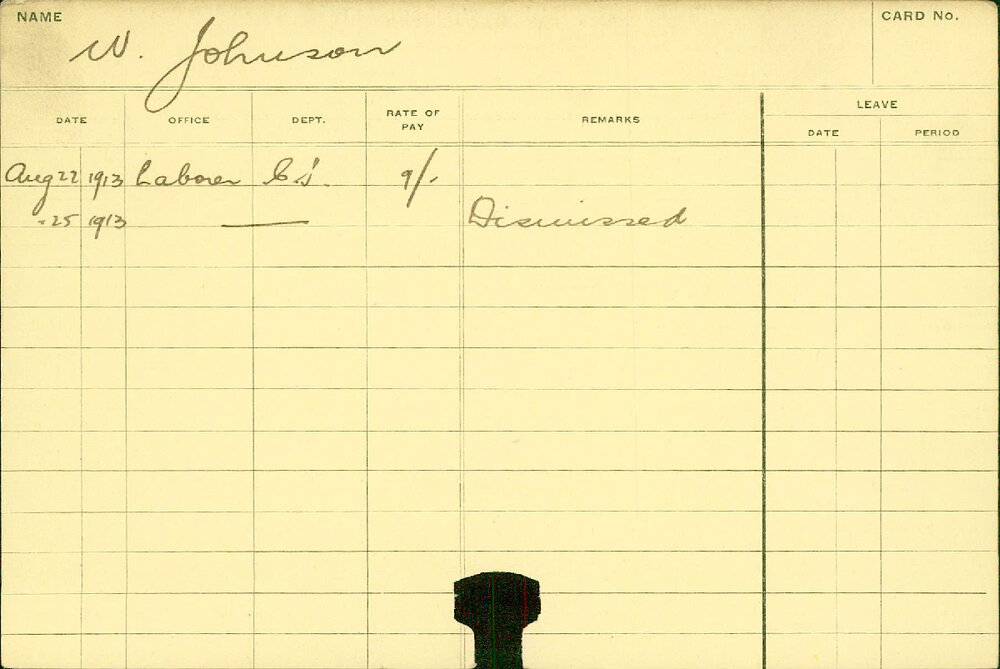 NAME
W. Johnson
CARD No.
DATE OFFICE DEPT. RATE OF PAY REMARKS LEAVE
DATE PERIOD
Aug 22 1913 Laborer 9/.
" 25 1913 — Dismissed